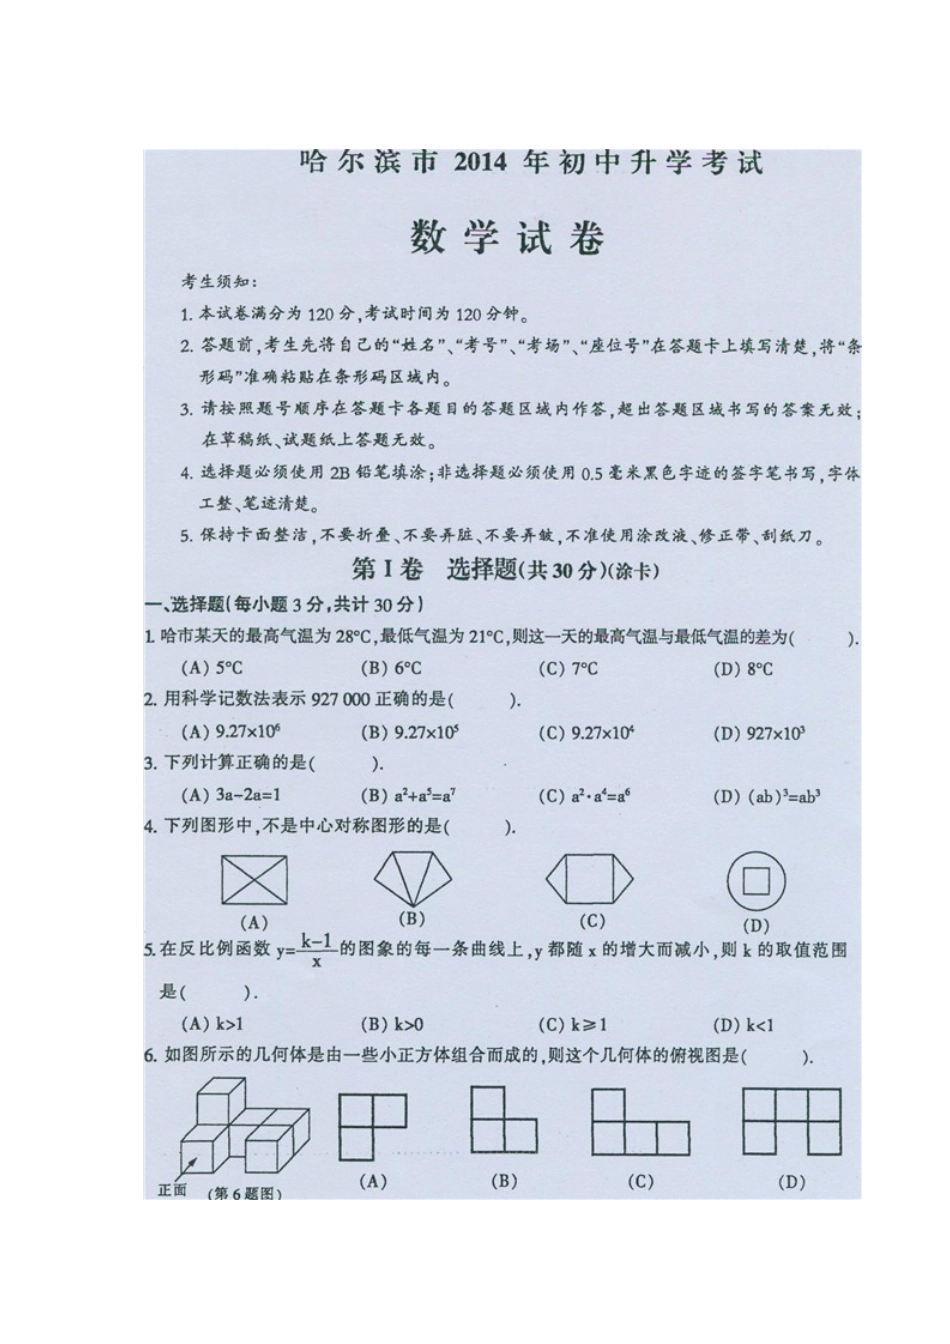 哈尔滨市 2014 年初中升学考试
数学试卷
考生须知:
1. 本试卷满分为 120 分,考试时间为 120 分钟。
2. 答题前,考生先将自己的“姓名”、“考号”、“考场”、“座位号”在答题卡上填写清楚,将“条
形码”准确粘贴在条形码区域内。
3. 请按照题号顺序在答题卡各题目的答题区域内作答,超出答题区域书写的答案无效;
在草稿纸、试题纸上答题无效。
4. 选择题必须使用 2B 铅笔填涂;非选择题必须使用 0.5 毫米黑色字迹的签字笔书写,字体
工整、笔迹清楚。
5. 保持卡面整洁,不要折叠、不要弄脏、不要弄皱,不准使用涂改液、修正带、刮纸刀。
第 I 卷 选择题(共 30 分)(涂卡)
一、选择题(每小题 3 分,共计 30 分)
1. 哈市某天的最高气温为 28°C,最低气温为 21°C,则这一天的最高气温与最低气温的差为( ).
(A) 5°C (B) 6°C (C) 7°C (D) 8°C
2. 用科学记数法表示 927 000 正确的是( ).
(A) 9.27×10⁶ (B) 9.27×10⁵ (C) 9.27×10⁴ (D) 927×10³
3. 下列计算正确的是( ).
(A) 3a-2a=1 (B) a²+a⁵=a⁷ (C) a²·a⁴=a⁶ (D) (ab)³=ab³
4. 下列图形中,不是中心对称图形的是( ).
(A) (B) (C) (D)
5. 在反比例函数 y=(k-1)/x 的图象的每一条曲线上,y 都随 x 的增大而减小,则 k 的取值范围
是( ).
(A) k>1 (B) k>0 (C) k≥1 (D) k<1
6. 如图所示的几何体是由一些小正方体组合而成的,则这个几何体的俯视图是( ).
正面 (第 6 题图) (A) (B) (C) (D)